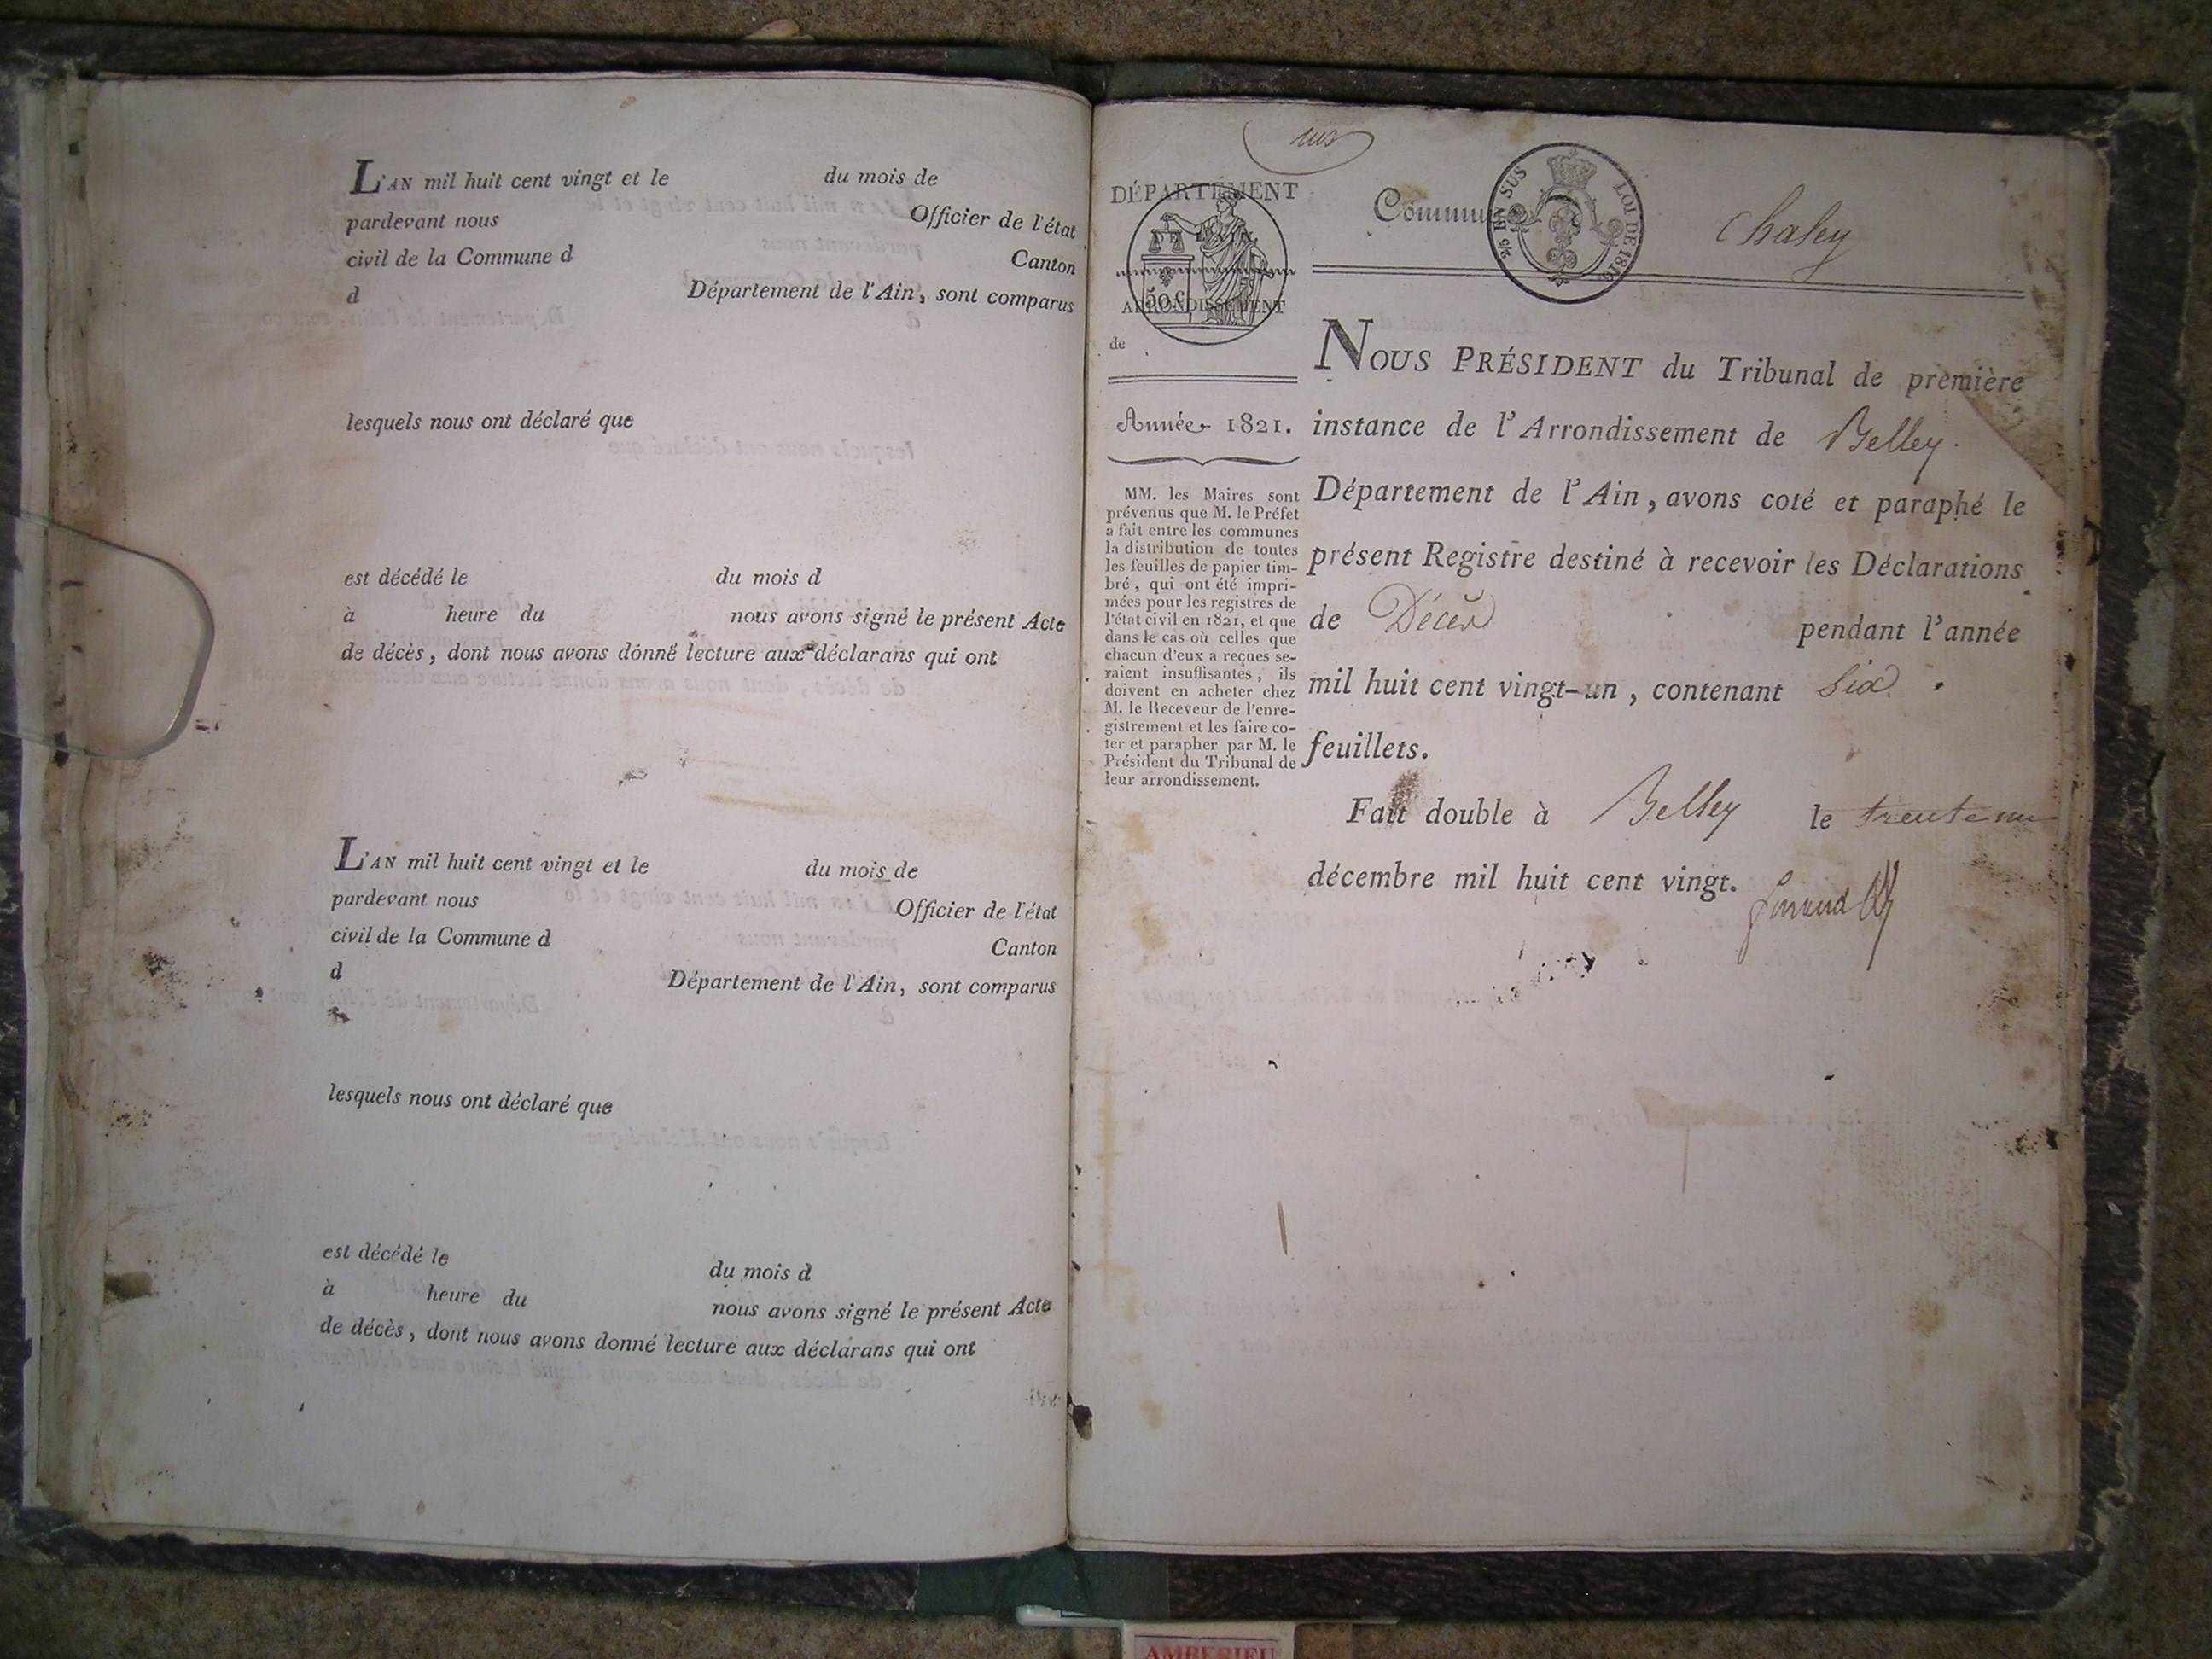 L'AN mil huit cent vingt et le du mois de
pardevant nous Officier de l'état
civil de la Commune d Canton
d Département de l'Ain, sont comparus
lesquels nous ont déclaré que
est décédé le du mois d
à heure du nous avons signé le présent Acte
de décès, dont nous avons donné lecture aux déclarans qui ont
L'AN mil huit cent vingt et le du mois de
pardevant nous Officier de l'état
civil de la Commune d Canton
d Département de l'Ain, sont comparus
lesquels nous ont déclaré que
est décédé le du mois d
à heure du nous avons signé le présent Acte
de décès, dont nous avons donné lecture aux déclarans qui ont
DÉPARTEMENT
DE L'AIN.
50 C
ARRONDISSEMENT
de
Année 1821.
MM. les Maires sont
prévenus que M. le Préfet
a fait entre les communes
la distribution de toutes
les feuilles de papier tim-
bré, qui ont été impri-
mées pour les registres de
l'état civil en 1821, et que
dans le cas où celles que
chacun d'eux a reçues se-
raient insuffisantes, ils
doivent en acheter chez
M. le Receveur de l'enre-
gistrement et les faire co-
ter et parapher par M. le
Président du Tribunal de
leur arrondissement.
Commune Chaley
EN SUS LOI DE 1816
NOUS PRÉSIDENT du Tribunal de première
instance de l'Arrondissement de Belley.
Département de l'Ain, avons coté et paraphé le
présent Registre destiné à recevoir les Déclarations
de Décès pendant l'année
mil huit cent vingt-un, contenant six
feuillets.
Fait double à Belley le trente un
décembre mil huit cent vingt.
AMBERIEU